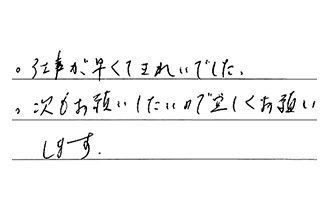 。仕事が早くてきれいでした、
。次もお願いしたいので宜しくお願い
します.